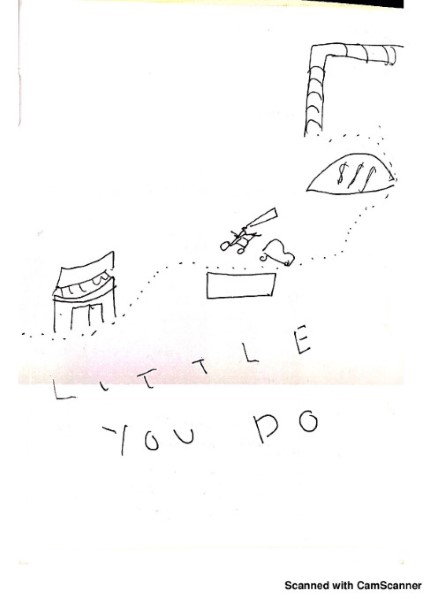 LITTLE
YOU DO
Scanned with CamScanner